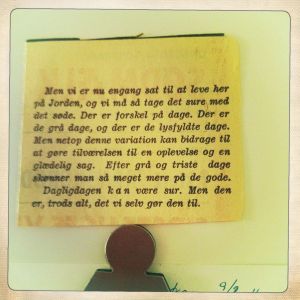 Men vi er nu engang sat til at leve her
på Jorden, og vi må så tage det sure med
det søde. Der er forskel på dage. Der er
de grå dage, og der er de lysfyldte dage.
Men netop denne variation kan bidrage til
at gøre tilværelsen til en oplevelse og en
glædelig sag. Efter grå og triste dage
skønner man så meget mere på de gode.
Dagligdagen kan være sur. Men den
er, trods alt, det vi selv gør den til.
9/2